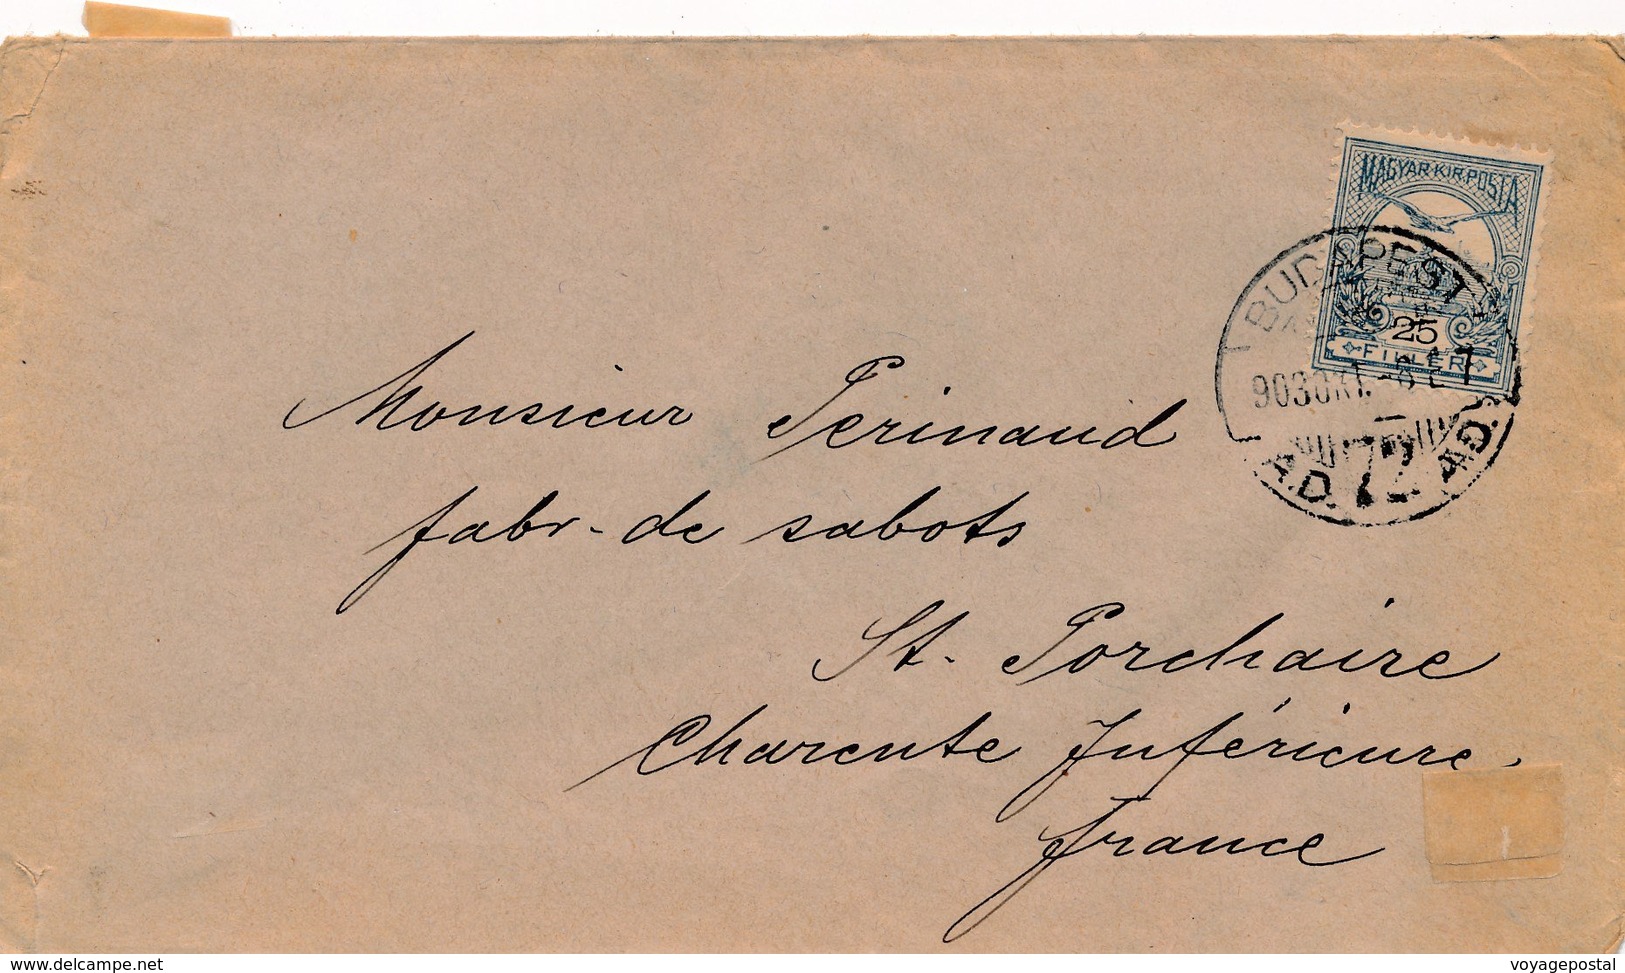 MAGYAR KIR. POSTA
25
FILLÉR
BUDAPEST
903 OKT.
72
Monsieur Perinaud
fabr - de sabots
St. Porchaire
Charente Inférieure.
France
www.delcampe.net
voyagepostal